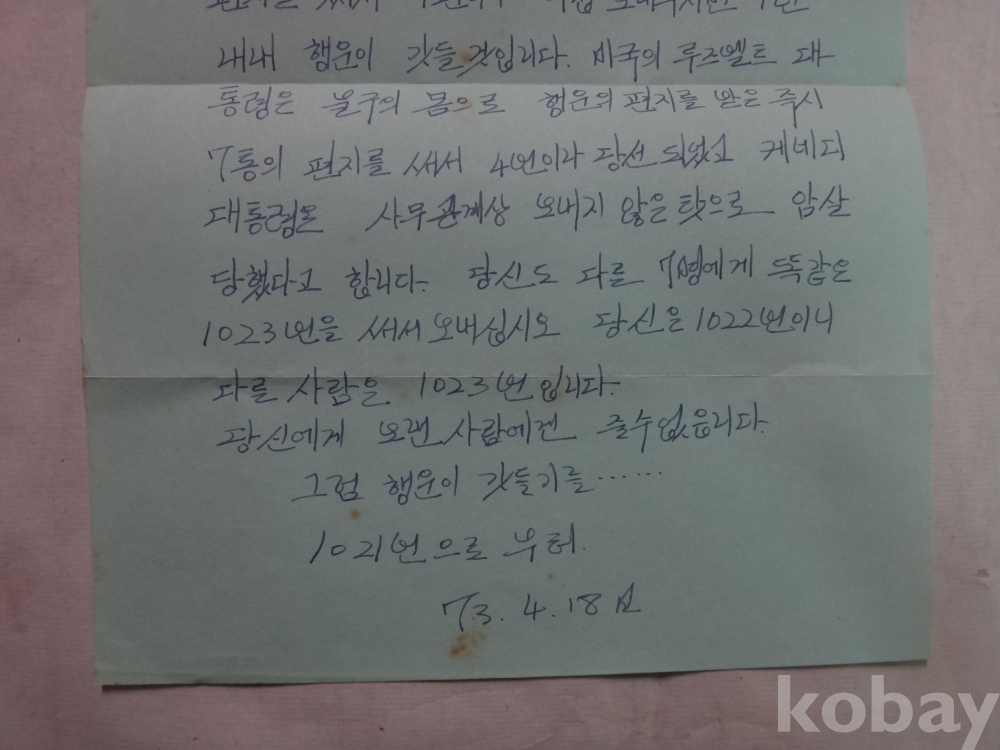 내내 행운이 깃들 것입니다. 미국의 루즈벨트 대
통령은 불구의 몸으로 행운의 편지를 받은 즉시
7통의 편지를 써서 4번이나 당선 되었고 케네디
대통령은 사무관계상 보내지 않은 탓으로 암살
당했다고 합니다. 당신도 다를 7명에게 똑같은
1023번을 써서 보내십시오 당신은 1022번이니
다를 사람은 1023번 입니다.
당신에게 보낸 사람에겐 줄수없읍니다.
그럼 행운이 깃들기를......
1021번으로 부터.
73. 4. 18 日
kobay